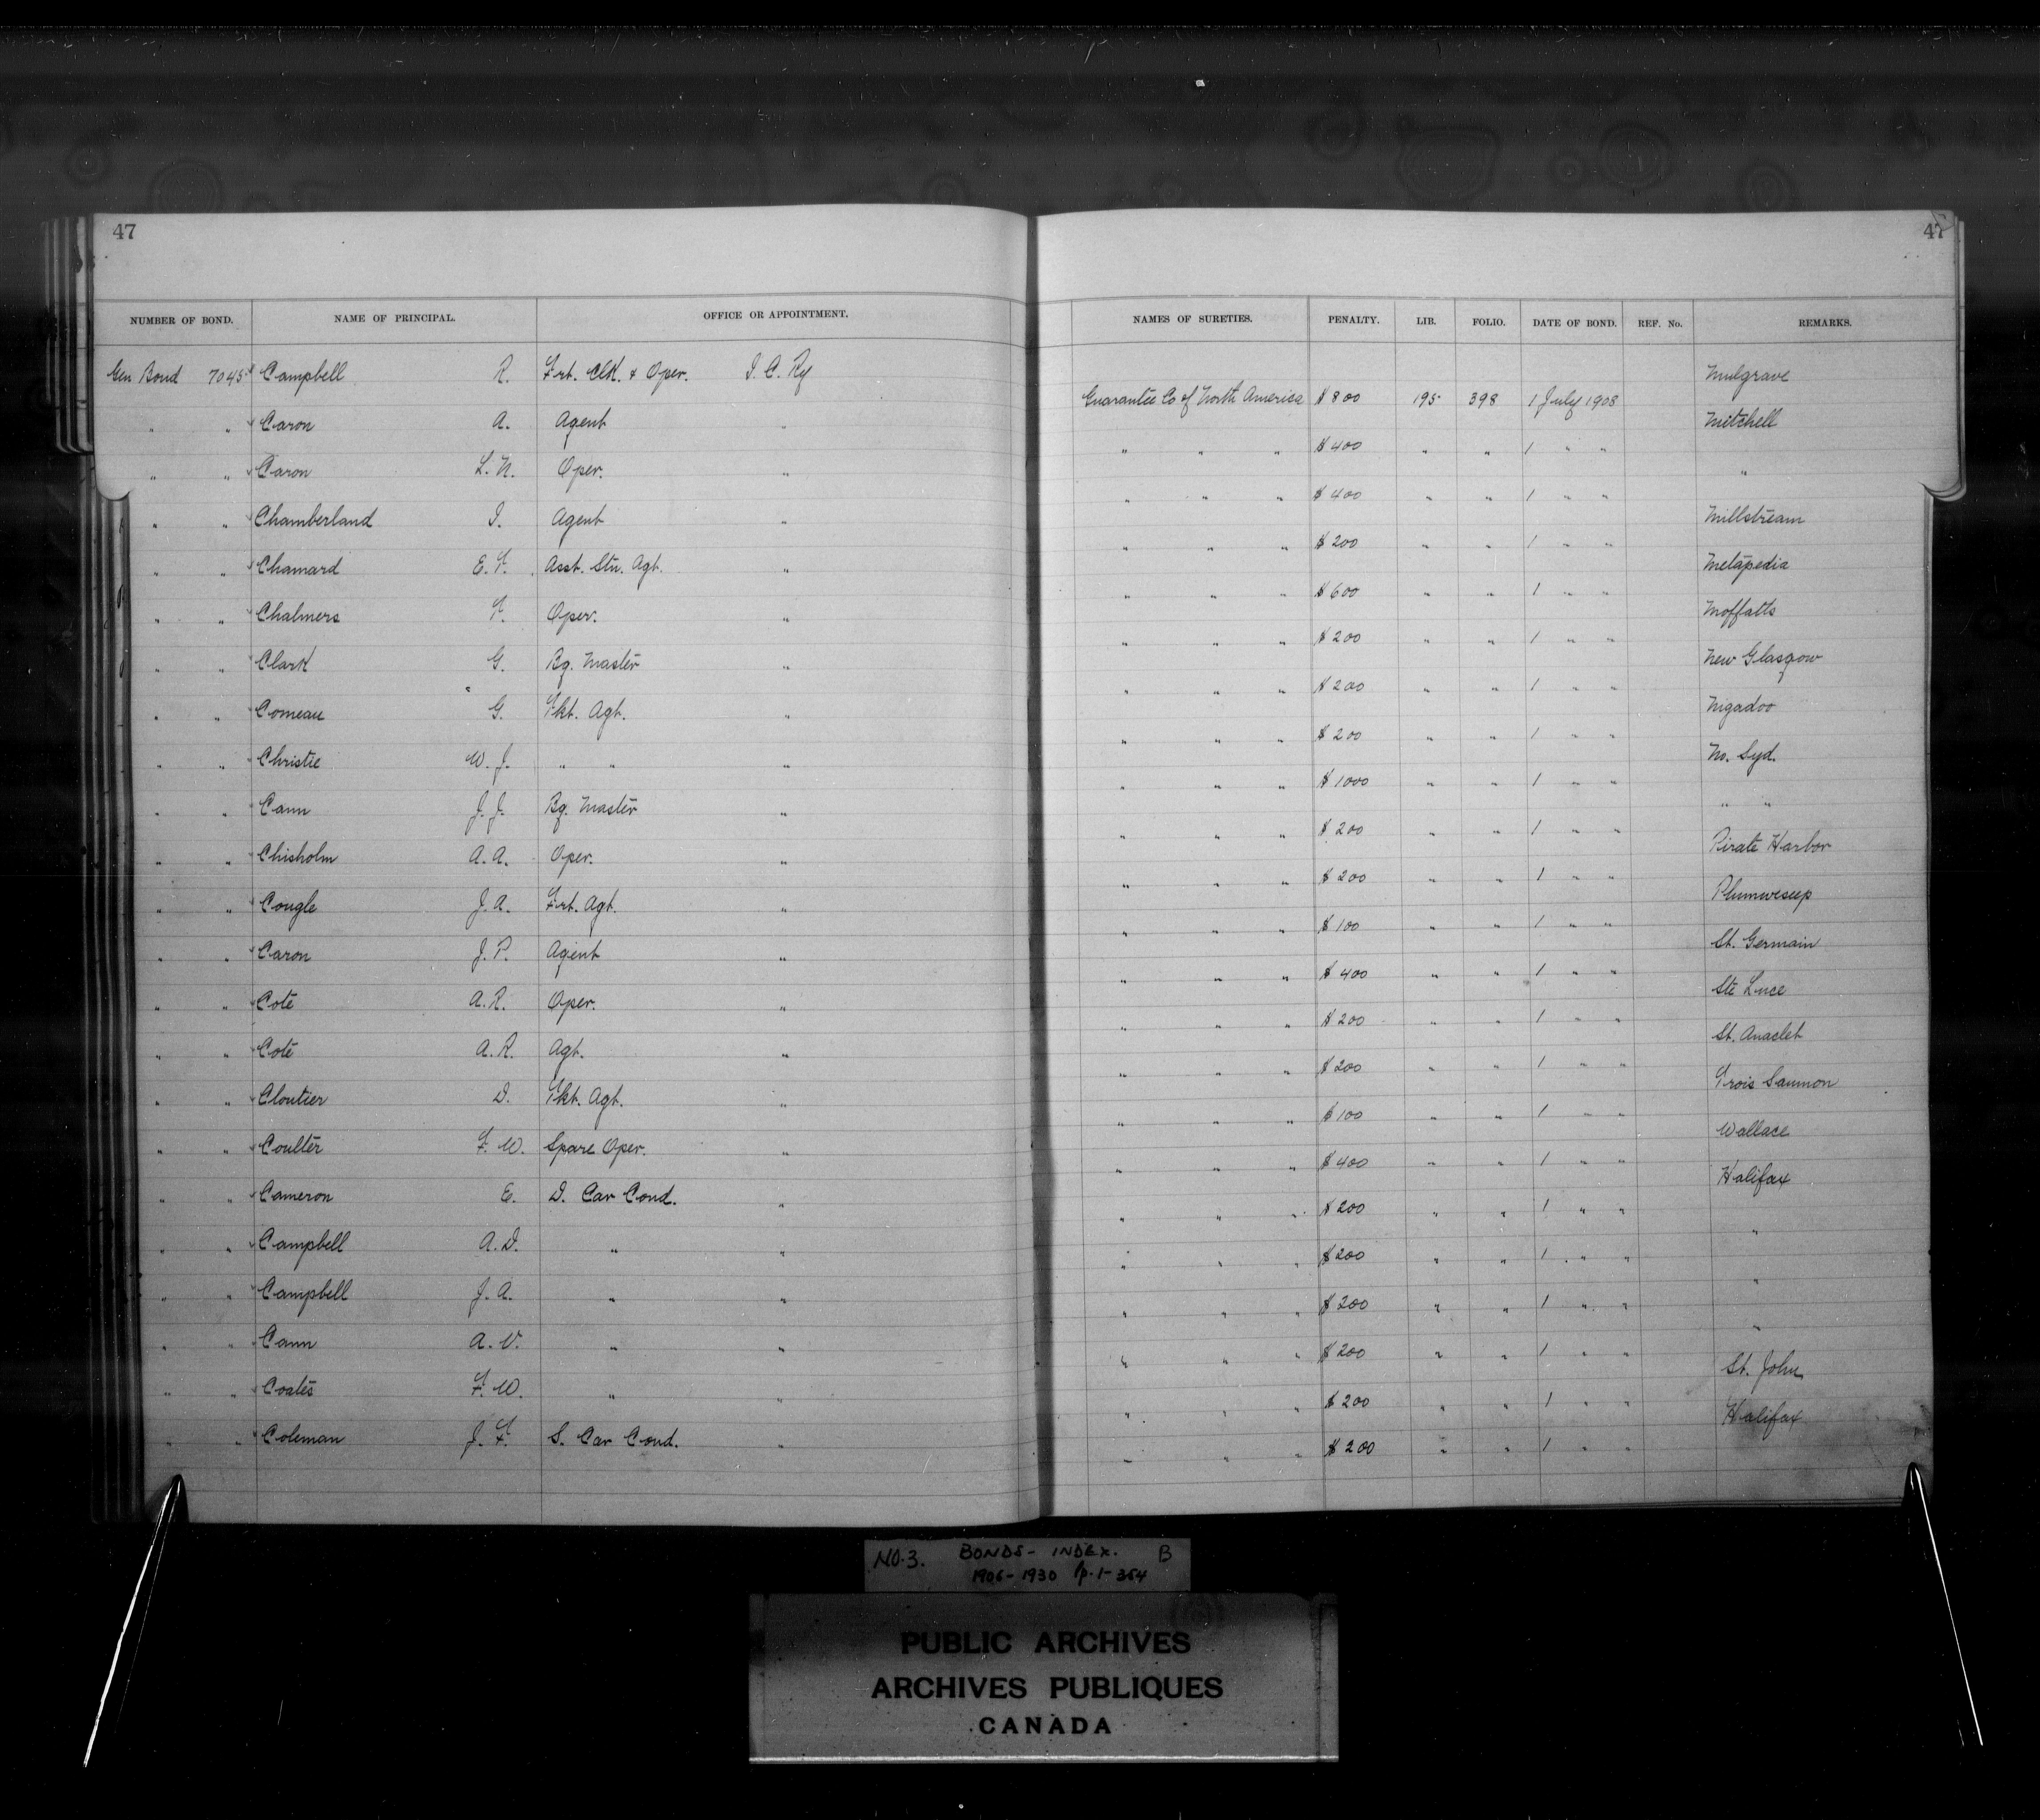 47
47
NUMBER OF BOND. NAME OF PRINCIPAL. OFFICE OR APPOINTMENT. NAMES OF SURETIES. PENALTY. LIB. FOLIO. DATE OF BOND. REF. No. REMARKS.
Gen Bond 7045 Campbell R. Frt. Clk. & Oper. I. C. Ry Guarantee Co of North America $800 195 398 1 July 1908 Mulgrave
" " Caron A. Agent " " " " $400 " " 1 " " Mitchell
" " Caron L. N. Oper. " " " " $400 " " 1 " " "
" " Chamberland I. Agent " " " " $200 " " 1 " " Millstream
" " Chamard E. F. Asst. Stn. Agt. " " " " $600 " " 1 " " Metapedia
" " Chalmers F. Oper. " " " " $200 " " 1 " " Moffatts
" " Clark G. Bg. Master " " " " $200 " " 1 " " New Glasgow
" " Comeau G. Tkt. Agt. " " " " $200 " " 1 " " Nigadoo
" " Christie W. J. " " " " " " $1000 " " 1 " " No. Syd.
" " Cann J. J. Bg. Master " " " " $200 " " 1 " " " "
" " Chisholm A. A. Oper. " " " " $200 " " 1 " " Pirate Harbor
" " Cougle J. A. Frt. Agt. " " " " $100 " " 1 " " Plumweseep
" " Caron J. P. Agent " " " " $400 " " 1 " " St. Germain
" " Coté A. R. Oper. " " " " $200 " " 1 " " Ste Luce
" " Coté A. R. Agt. " " " " $200 " " 1 " " St. Anaclet
" " Cloutier D. Tkt. Agt. " " " " $100 " " 1 " " Trois Saumon
" " Coulter F. W. Spare Oper. " " " " $400 " " 1 " " Wallace
" " Cameron E. D. Car Cond. " " " " $200 " " 1 " " Halifax
" " Campbell A. D. " " " " " $200 " " 1 " " "
" " Campbell J. A. " " " " " $200 " " 1 " " "
" " Cann A. V. " " " " " $200 " " 1 " " "
" " Coates F. W. " " " " " $200 " " 1 " " St. John
" " Coleman J. F. S. Car Cond. " " " " $200 " " 1 " " Halifax
NO. 3. BONDS - INDEX. B
1906-1930 p. 1-364
PUBLIC ARCHIVES
ARCHIVES PUBLIQUES
CANADA